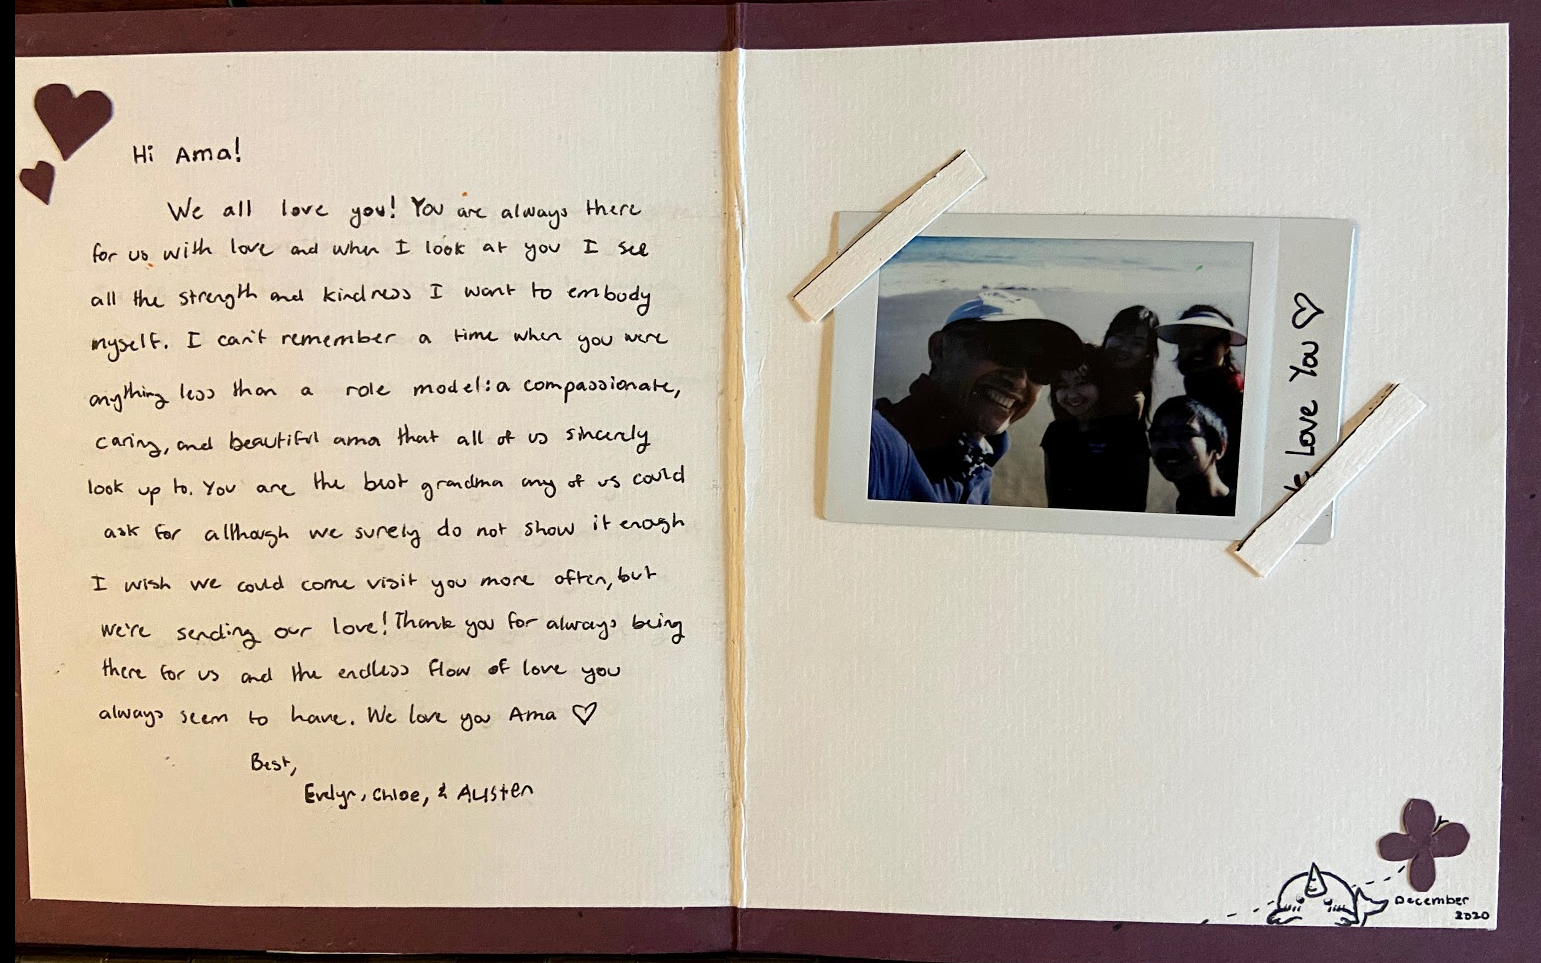 Hi Ama!
We all love you! You are always there
for us with love and when I look at you I see
all the strength and kindness I want to embody
myself. I can't remember a time when you were
anything less than a role model: a compassionate,
caring, and beautiful ama that all of us sincerely
look up to. You are the best grandma any of us could
ask for although we surely do not show it enogh
I wish we could come visit you more often, but
we're sending our love! Thank you for always being
there for us and the endless flow of love you
always seem to have. We love you Ama ♡
Best,
Evelyn, Chloe, & Austen
Love You ♡
December
2020